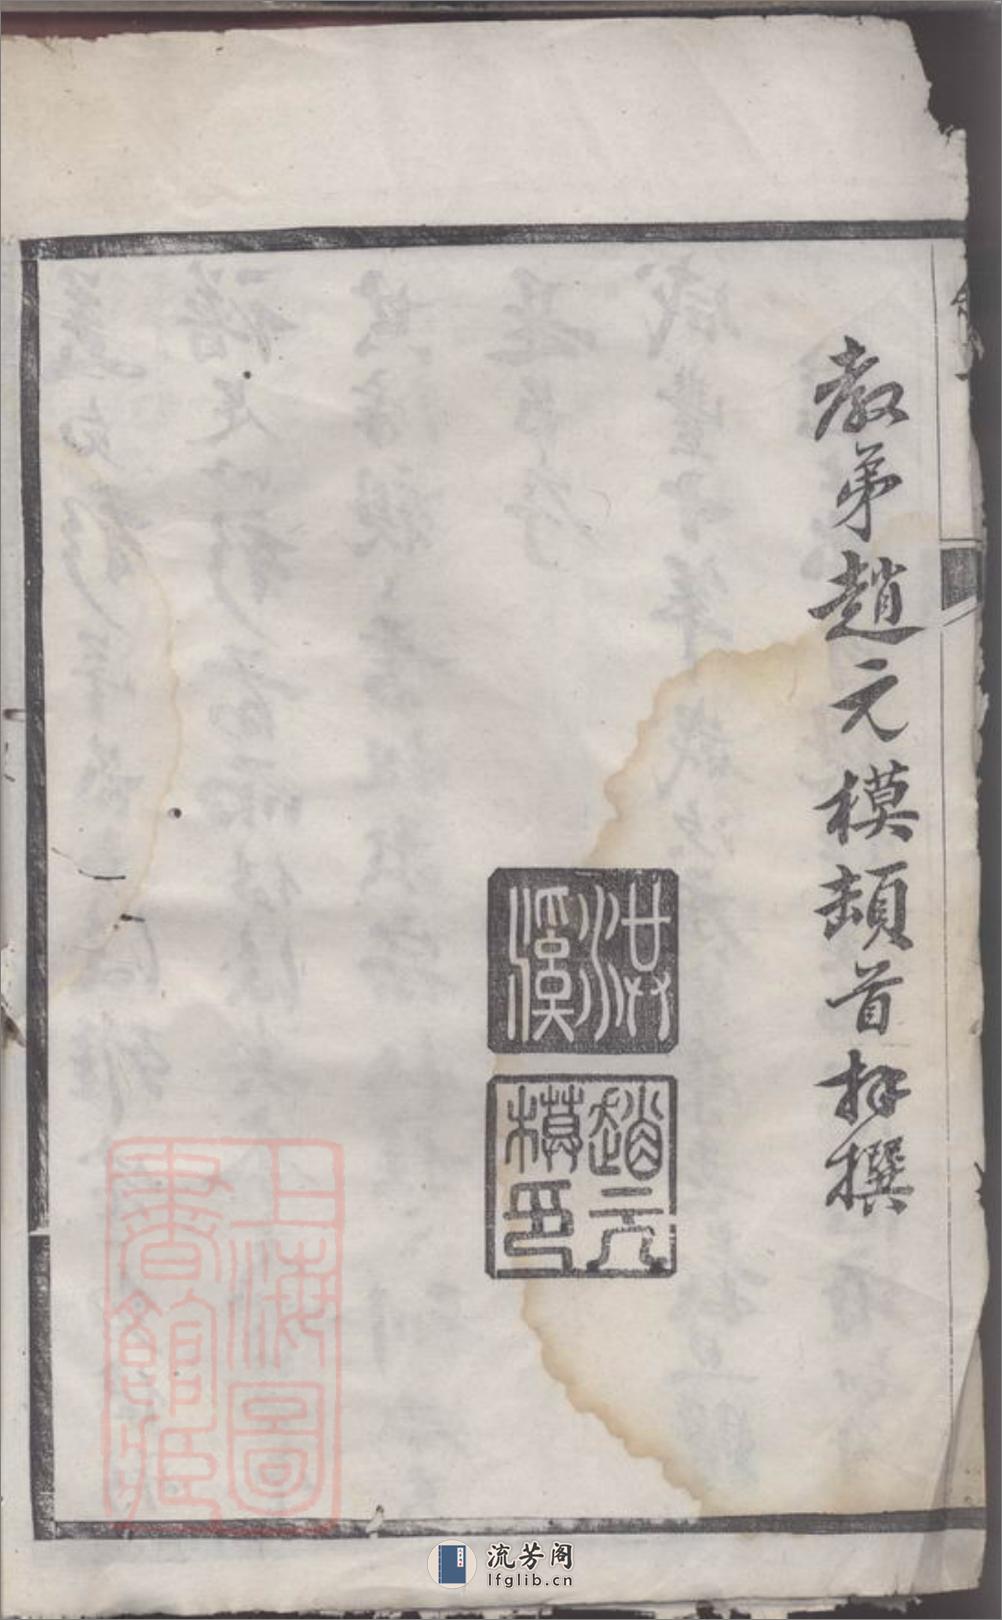 教弟趙元模頡首拜撰
洪溪
趙元模印
上海圖書館藏
流芳阁
lfglib.cn